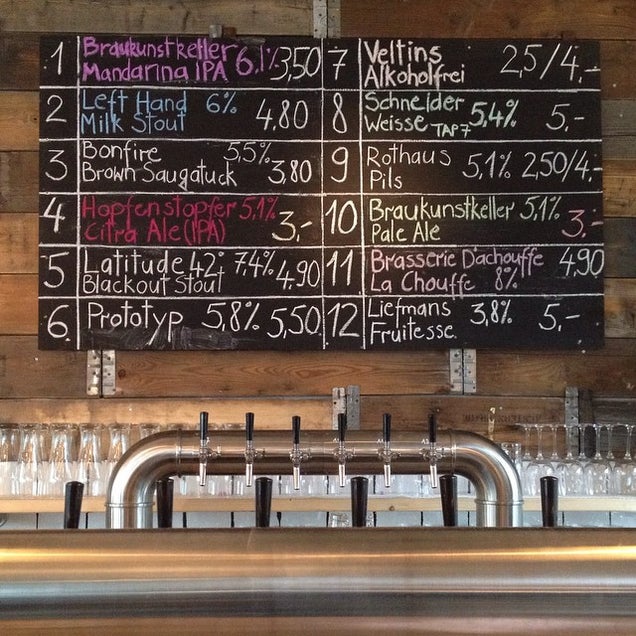 1 Braukunstkeller 6,1% 3,50
Mandarina IPA
2 Left Hand 6% 4.80
Milk Stout
3 Bonfire 5,5% 3,80
Brown Saugatuck
4 Hopfenstopfer 5,1% 3,-
Citra Ale (IPA)
5 Latitude 42° 7,4% 4.90
Blackout Stout
6. Prototyp 5,8% 5,50
7 Veltins 2,5/4,-
Alkoholfrei
8 Schneider 5,4% 5,-
Weisse TAP7
9 Rothaus 5,1% 2,50/4,-
Pils
10 Braukunstkeller 5,1% 3,-
Pale Ale
11 Brasserie D'achouffe 4,90
La Chouffe 8%
12 Liefmans 3,8% 5,-
Fruitesse.